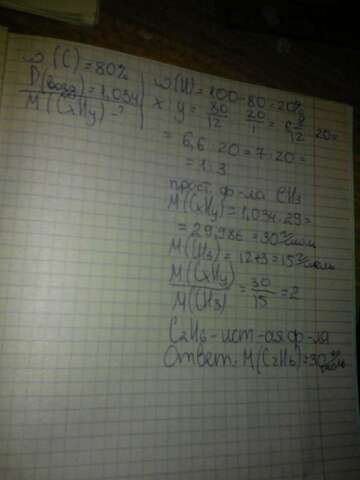 ω(C)=80%
D(возд)=1,034
M(CxHy)-?
ω(H)=100-80=20%
x:y=80/12 : 20/1 =
= 6,6:20=7:20=
=1:3
прост. ф-ла CH3
M(CxHy)=1,034·29=
=29,986=30г/моль
M(CH3)=12+3=15г/моль
M(CxHy)/M(CH3)=30/15=2
C2H6-ист-ая ф-ля
Ответ: M(C2H6)=30г/моль